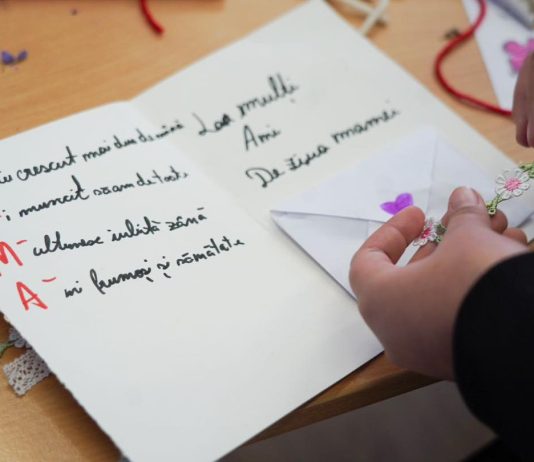 crescut mai dun de mână
i muncit s-am de toate
M- ulțumesc iubită zână
A- ni frumoși și sănătate
La mulți
Ani
De ziua mamei